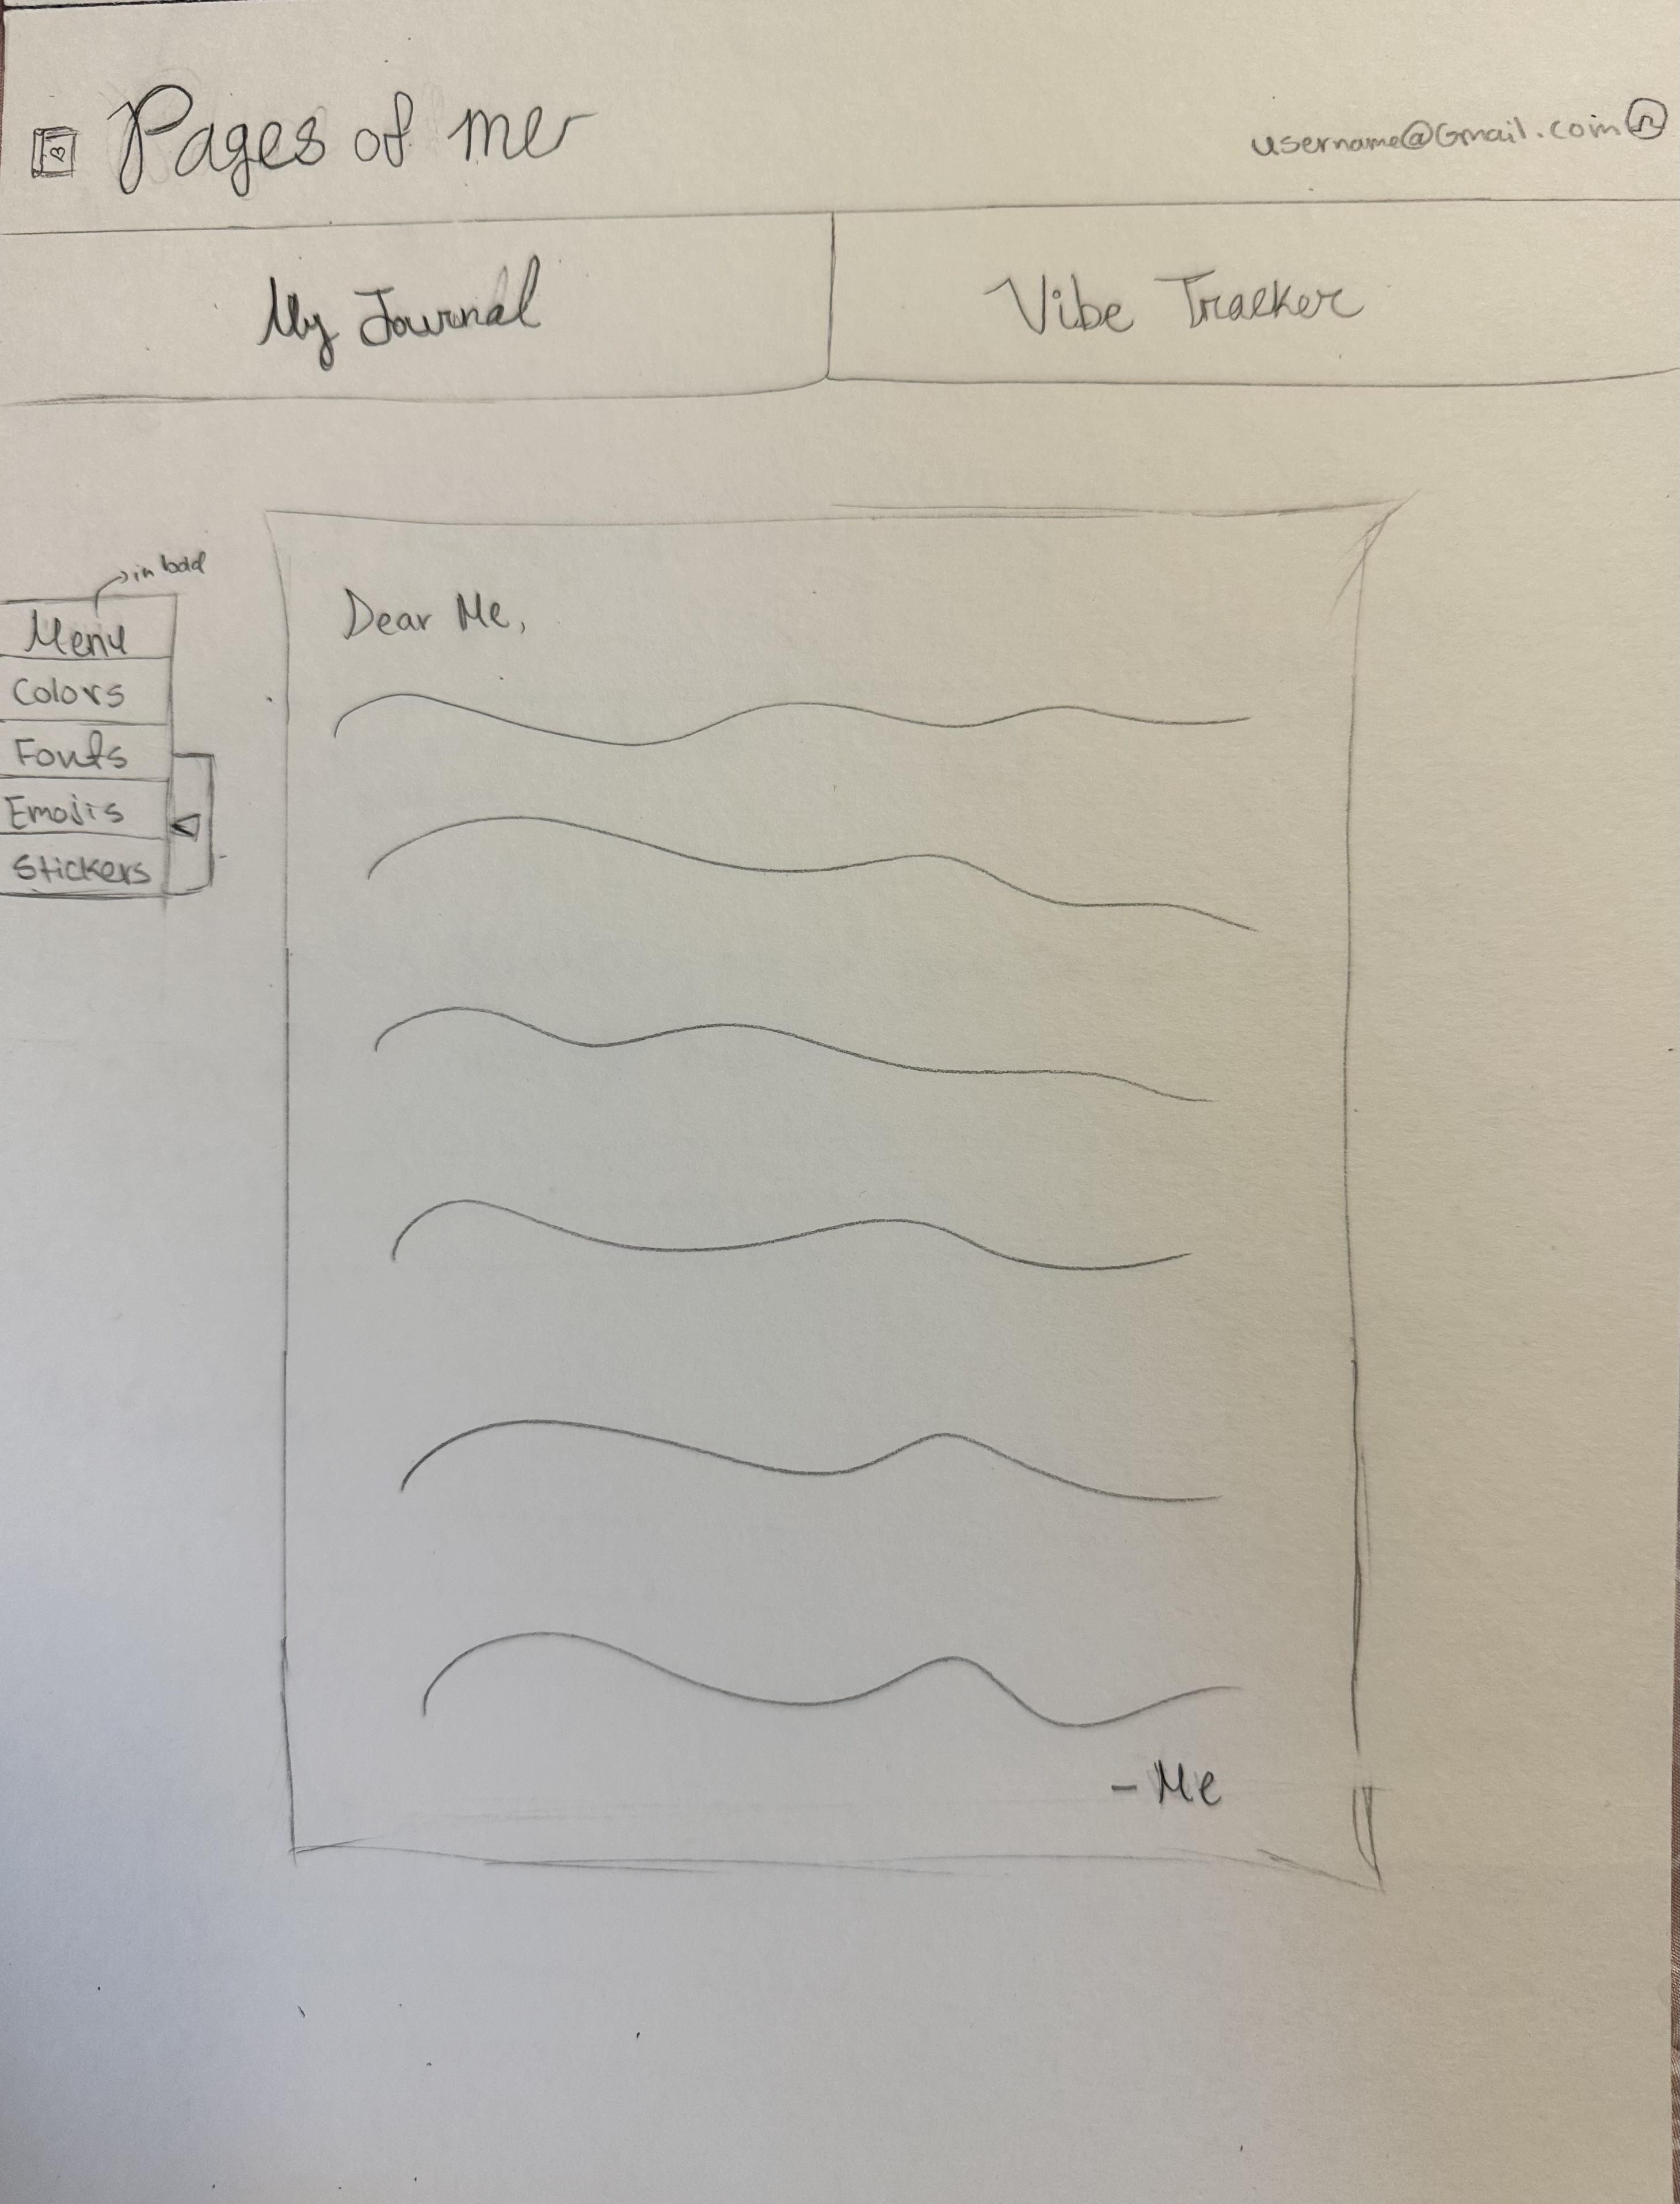 Pages of me
username@Gmail.com
My Journal
Vibe Tracker
in bold
Menu
Colors
Fonts
Emojis
Stickers
Dear Me,
- Me